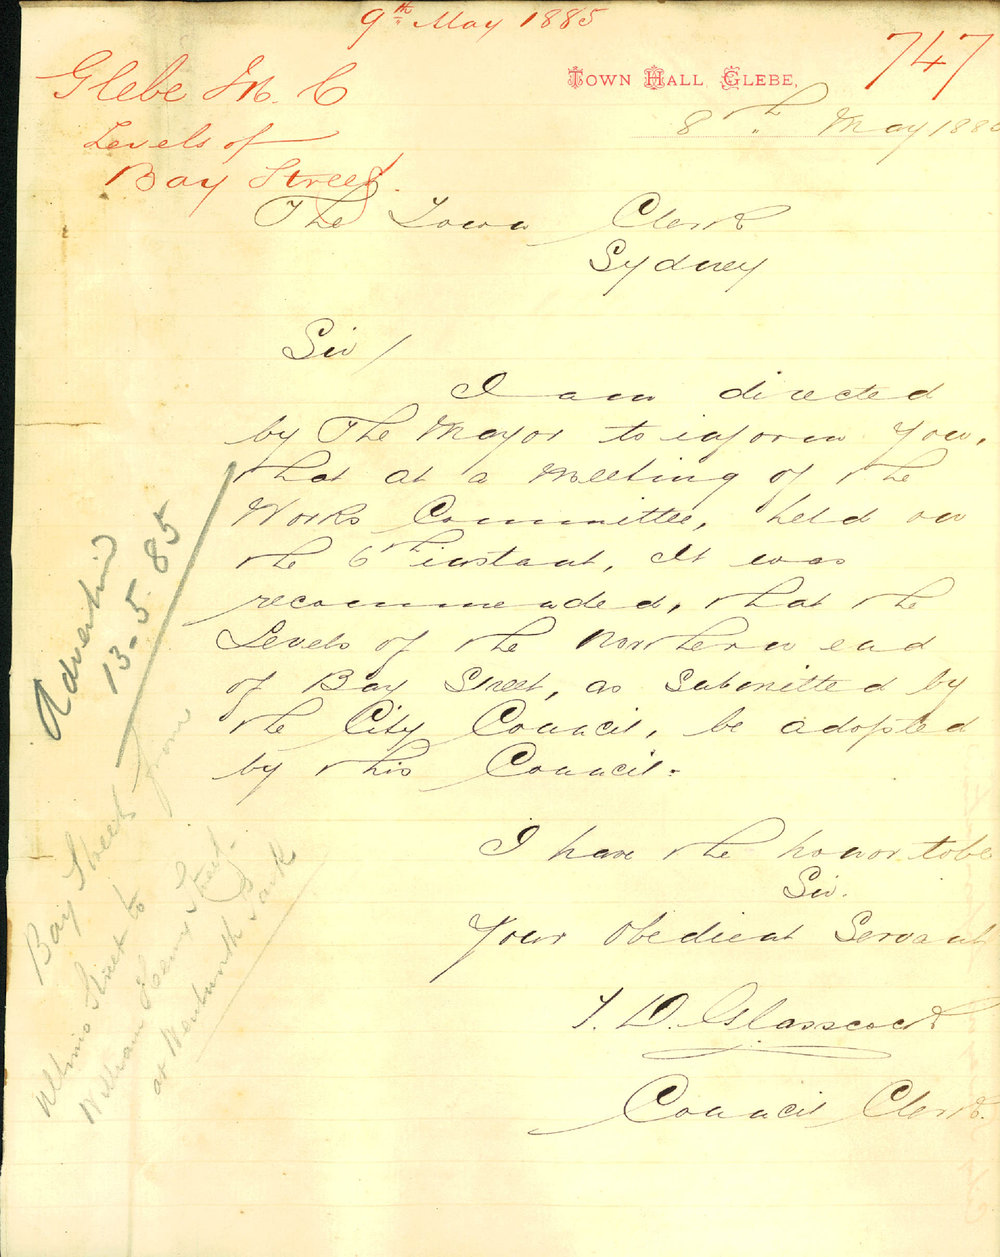 9th May 1885
747
Glebe M. C
Levels of
Bay Street.
TOWN HALL GLEBE,
8th May 188
The Town Clerk
Sydney
Sir /
I am directed
by The Mayor to inform you,
that at a Meeting of the
Works Committee, held on
the 6th instant, It was
recommended, that the
Levels of the Northern end
of Bay Street, as Submitted by
the City Council, be adopted
by this Council.
I have the honor to be
Sir.
Your Obedient Servant
T. D. Glasscock
Council Clerk.
Advertised
13-5-85
Bay Street from
Street to
William Henry Street
at Wentworth Park